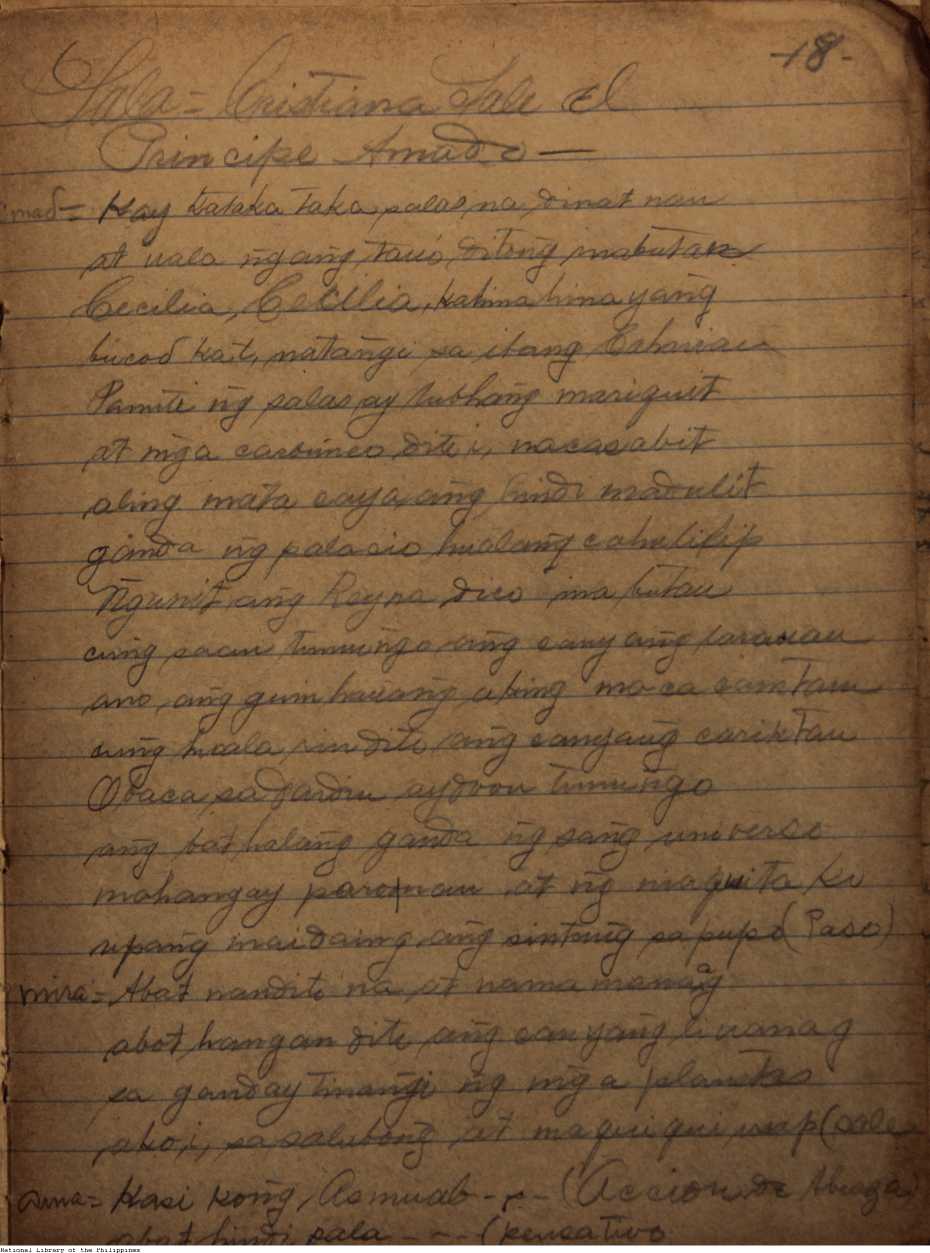 -18-
Sala = Cristiana Sale El
Principe Amudo —
mad = Kay kataka taka palas na dinat nan
at uala ngang tauo ditong inabutan
Cecilia, Cecilia, kahinahinayang
bucod kat, natangi sa ibang
ng palas ay lubhang mariquit
at mga dito i, nacasabit
aling mata caya ang hindi madulit
ganda ng palacio hualang cahulilip
Ngunit ang Reyna dico inabutan
cung saan tumungo ang canyang larauan
ano ang guinhauang aking macacamtan
cung huala rin dito ang canyang cariktan
Obaca sa jardin aydoon tumungo
ang bathalang ganda ng sang universo
mahangay paroonan at ng maquita ko
upang maidaing ang sintang sapupo (Paso)
mira = Abat nandito na at nama manaag
abot hangan dito ang canyang liuanag
sa ganday tinangi ng mga planetas
ako i, sa salubong at maquiquiusap (sale
ama = Kasi kong Asmuab - - (Accion de Abraza)
abat hindi pala - - - (pensativo
National Library of the Philippines